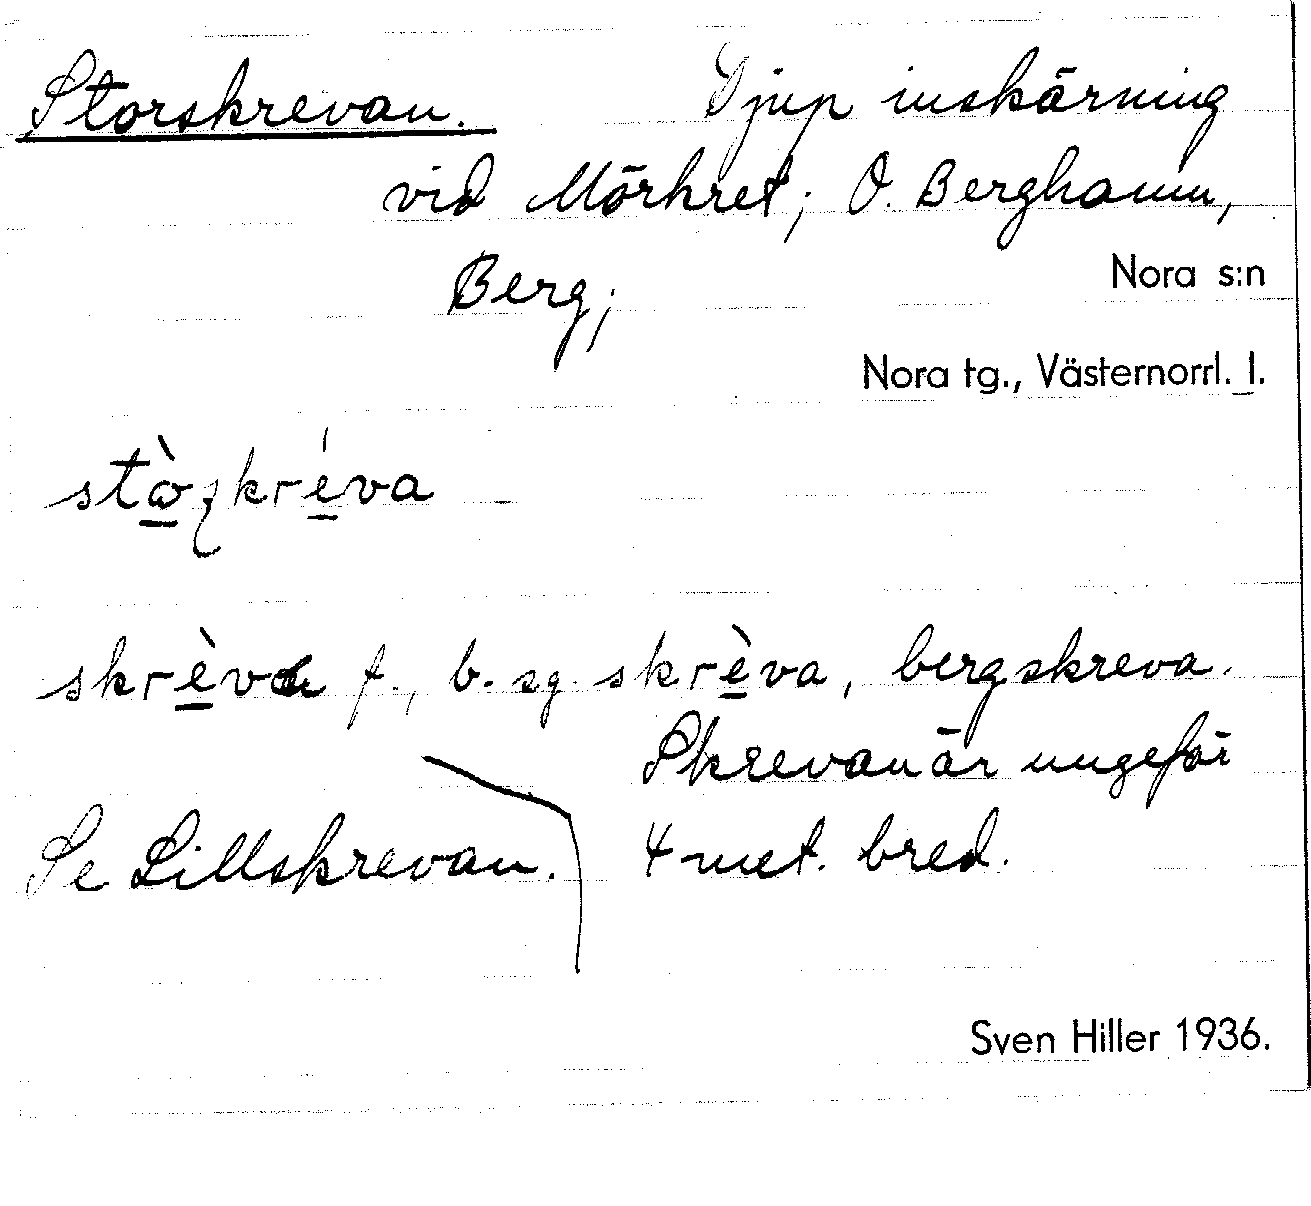 Storskrevan. Djup inskärning
vid Mörkret; O. Berghamn,
Berg;
Nora s:n
Nora tg., Västernorrl. l.
skrèva f., b. sg. skrèva, bergskreva.
Skrevan är ungefär
Se Lillskrevan. 4 met. bred.
Sven Hiller 1936.